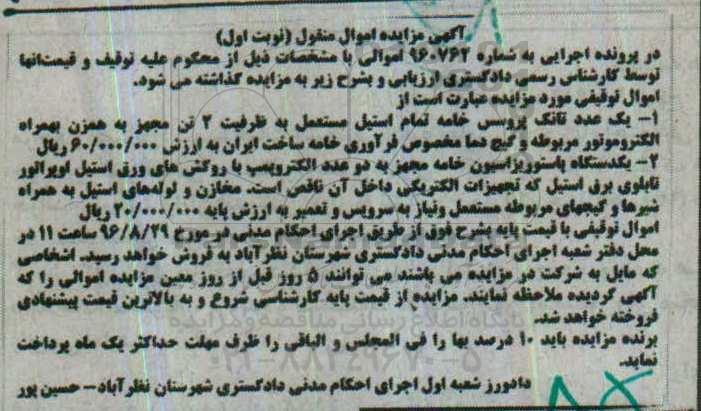 آگهی مزایده اموال منقول (نوبت اول)
در پرونده اجرایی به شماره ۹۶۰۷۶۲ اموالی با مشخصات ذیل از محکوم علیه توقیف و قیمت‌انها
توسط کارشناس رسمی دادگستری ارزیابی و بشرح زیر به مزایده گذاشته می شود.
اموال توقیفی مورد مزایده عبارت است از
۱- یک عدد تانک پروسس خامه تمام استیل مستعمل به ظرفیت ۲ تن مجهز به همزن بهمراه
الکتروموتور مربوطه و گیج دما مخصوص فرآوری خامه ساخت ایران به ارزش ۶۰/۰۰۰/۰۰۰ ریال
۲- یکدستگاه پاستوریزاسیون خامه مجهز به دو عدد الکتروپمپ با روکش های ورق استیل اوپراتور
تابلوی برق استیل که تجهیزات الکتریکی داخل آن ناقص است. مخازن و لوله‌های استیل به همراه
شیرها و گیجهای مربوطه مستعمل ونیاز به سرویس و تعمیر به ارزش پایه ۲۰/۰۰۰/۰۰۰ ریال
اموال توقیفی با قیمت پایه بشرح فوق از طریق اجرای احکام مدنی در مورخ ۹۶/۸/۲۹ ساعت ۱۱ در
محل دفتر شعبه اجرای احکام مدنی دادگستری شهرستان نظرآباد به فروش خواهد رسید. اشخاصی
که مایل به شرکت در مزایده می باشند می توانند ۵ روز قبل از روز معین مزایده اموالی را که
آگهی گردیده ملاحظه نمایند. مزایده از قیمت پایه کارشناسی شروع و به بالاترین قیمت پیشنهادی
فروخته خواهد شد.
برنده مزایده باید ۱۰ درصد بها را فی المجلس و الباقی را ظرف مهلت حداکثر یک ماه پرداخت
نماید.
دادورز شعبه اول اجرای احکام مدنی دادگستری شهرستان نظرآباد – حسین پور
پایگاه اطلاع رسانی مناقصه و مزایده
۰۲۱-۸۸۳۴۹۶۷۰-۵